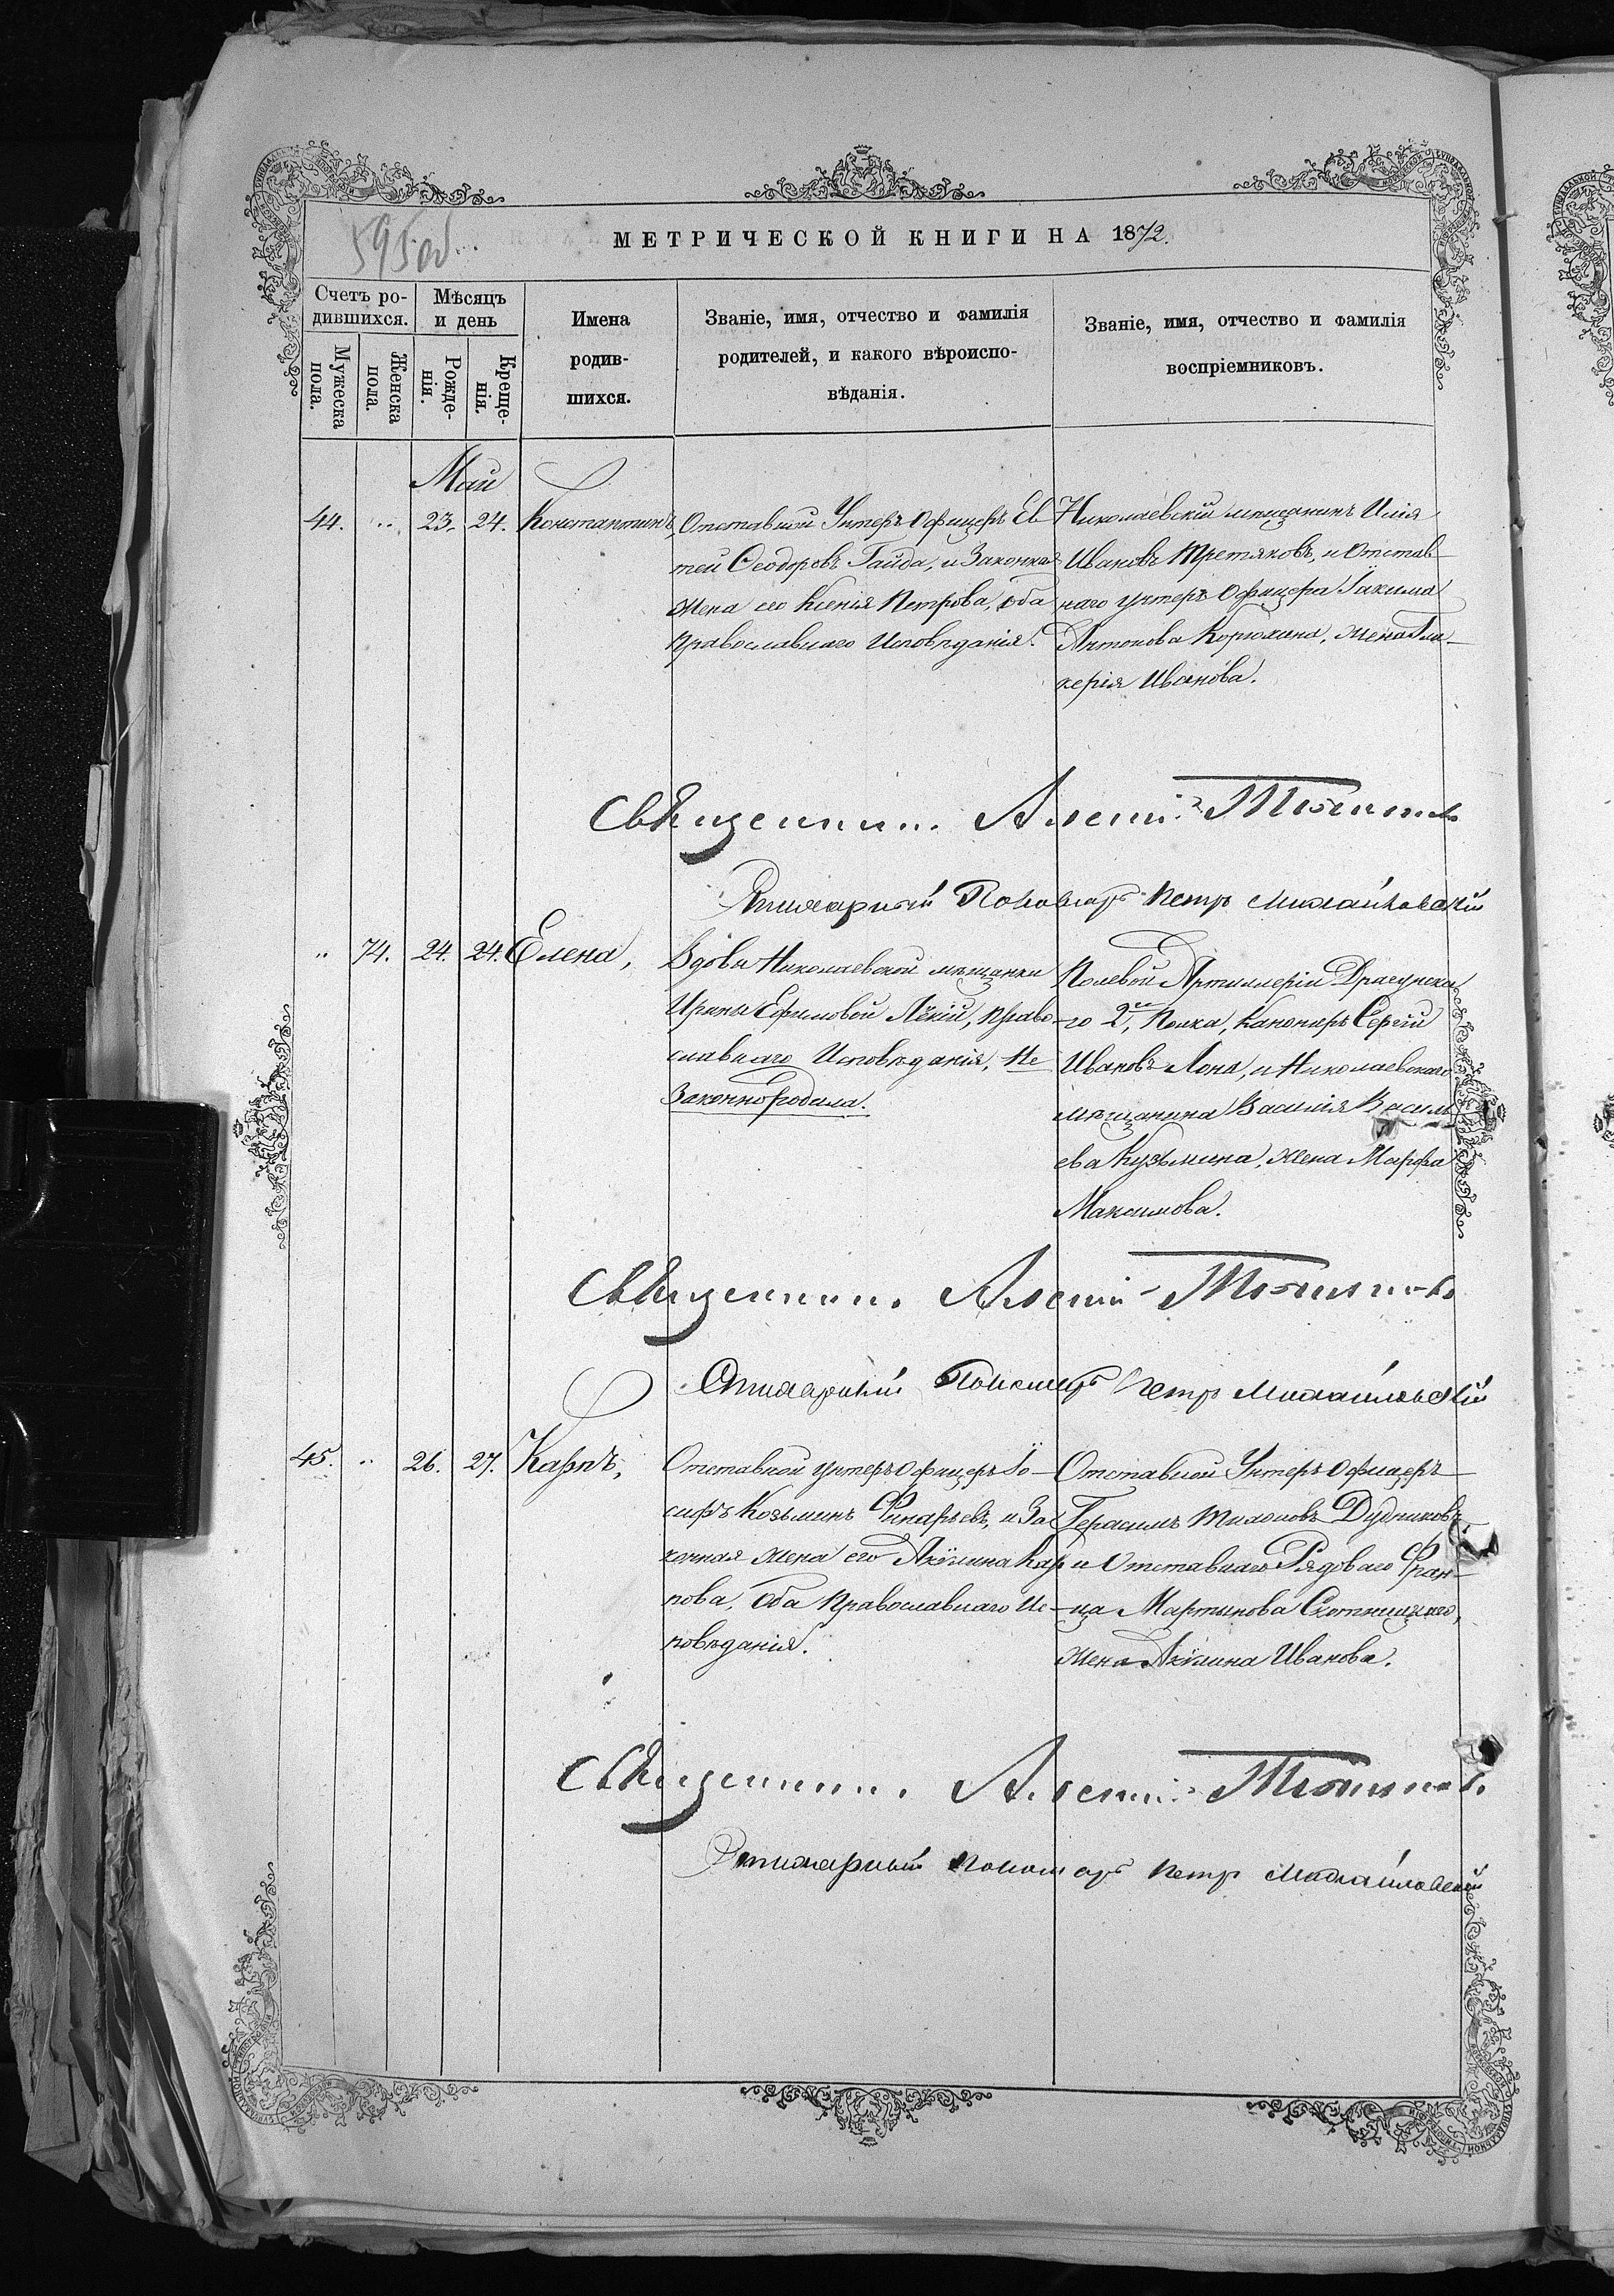 595об
МЕТРИЧЕСКОЙ КНИГИ НА 1872.
Счетъ ро-
дившихся.
Мѣсяцъ
и день
Мужеска
пола.
Женска
пола.
Рожде-
нія.
Креще-
нія.
Имена
родив-
шихся.
Званіе, имя, отчество и фамилія
родителей, и какого вѣроиспо-
вѣданія.
Званіе, имя, отчество и фамилія
воспріемниковъ.
Май
44. " 23. 24. Константинъ,
Отставной Унтеръ Офицеръ Ев-
тей Ѳеодоровъ Гайда, и Законная
жена его Ксенія Петрова, оба
Православнаго Исповѣданія.
Николаевскій мѣщанинъ Илія
Ивановъ Третяковъ, и Отстав-
наго унтеръ Офицера Іакима
Антонова Корюхина, жена Гли-
керія Иванова.
Священник Алексій
Стихарный Пономарь Петръ Михайловскій
" 74. 24. 24. Елена,
Вдовы Николаевской мѣщанки
Ирины Ефимовой Лёкій, право-
славнаго Исповѣданія, Не-
Законнородила.
Полевой Артиллеріи Драгунска-
го 2го, Полка, Канониръ Сергій
Ивановъ Лоня, и Николаевскаго
мѣщанина Василія Василь-
ева Кузьмина, жена Марфа
Максимова.
Священник Алексій
Стихарный Пономарь Петръ Михайловскій
45. " 26. 27. Карпъ,
Отставной унтеръ Офицеръ Іо-
сифъ Козьминъ Финарьевъ, и За-
конная жена его Акулина Кар-
пова, Оба Православнаго Ис-
повѣданія.
Отставной Унтеръ Офицеръ
Герасимъ Тихоновъ Дудниковъ,
и Отставнаго Рядоваго Фран-
ца Мартынова
жена Акулина Иванова.
Священник Алексій
Стихарный Пономарь Петръ Михайловскій